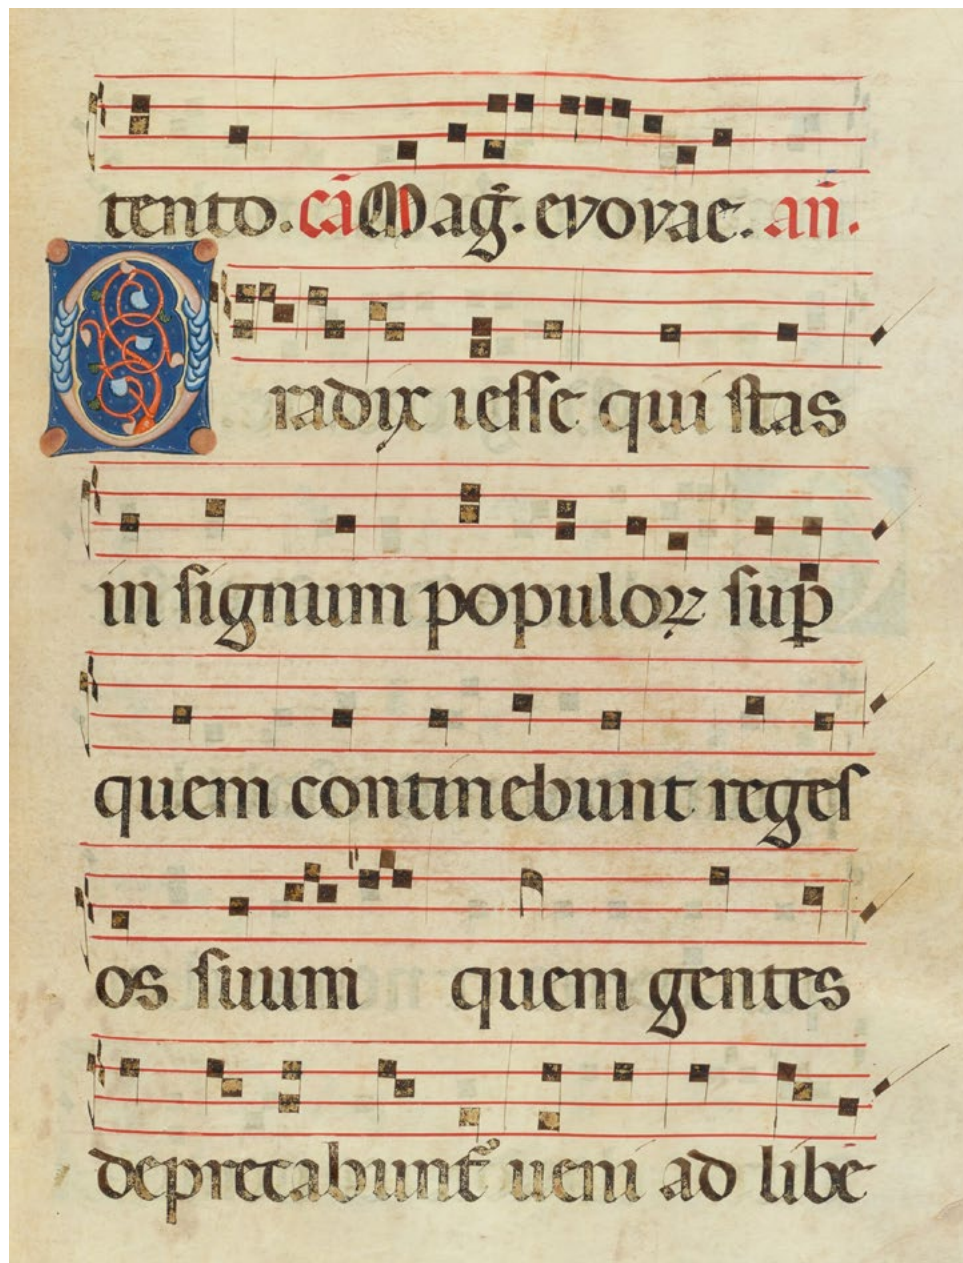 tento. cā Mag̃. evovae. añ.
O radix iesse qui stas
in signum populoꝝ sup̄
quem continebunt reges
os suum quem gentes
deprecabunt᷑ ueni ad libe